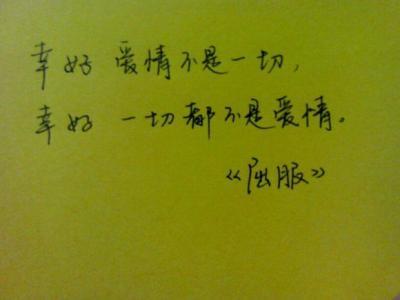 幸好 爱情不是一切，
幸好 一切都不是爱情。
《屈服》